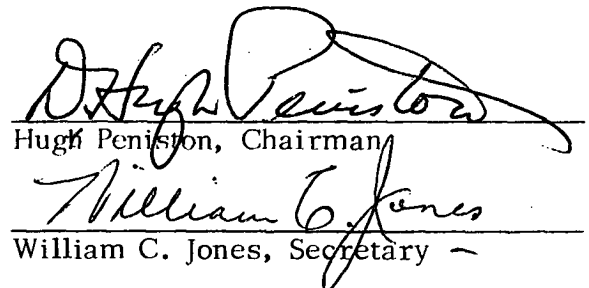 D. Hugh Peniston
Hugh Peniston, Chairman
William C. Jones
William C. Jones, Secretary